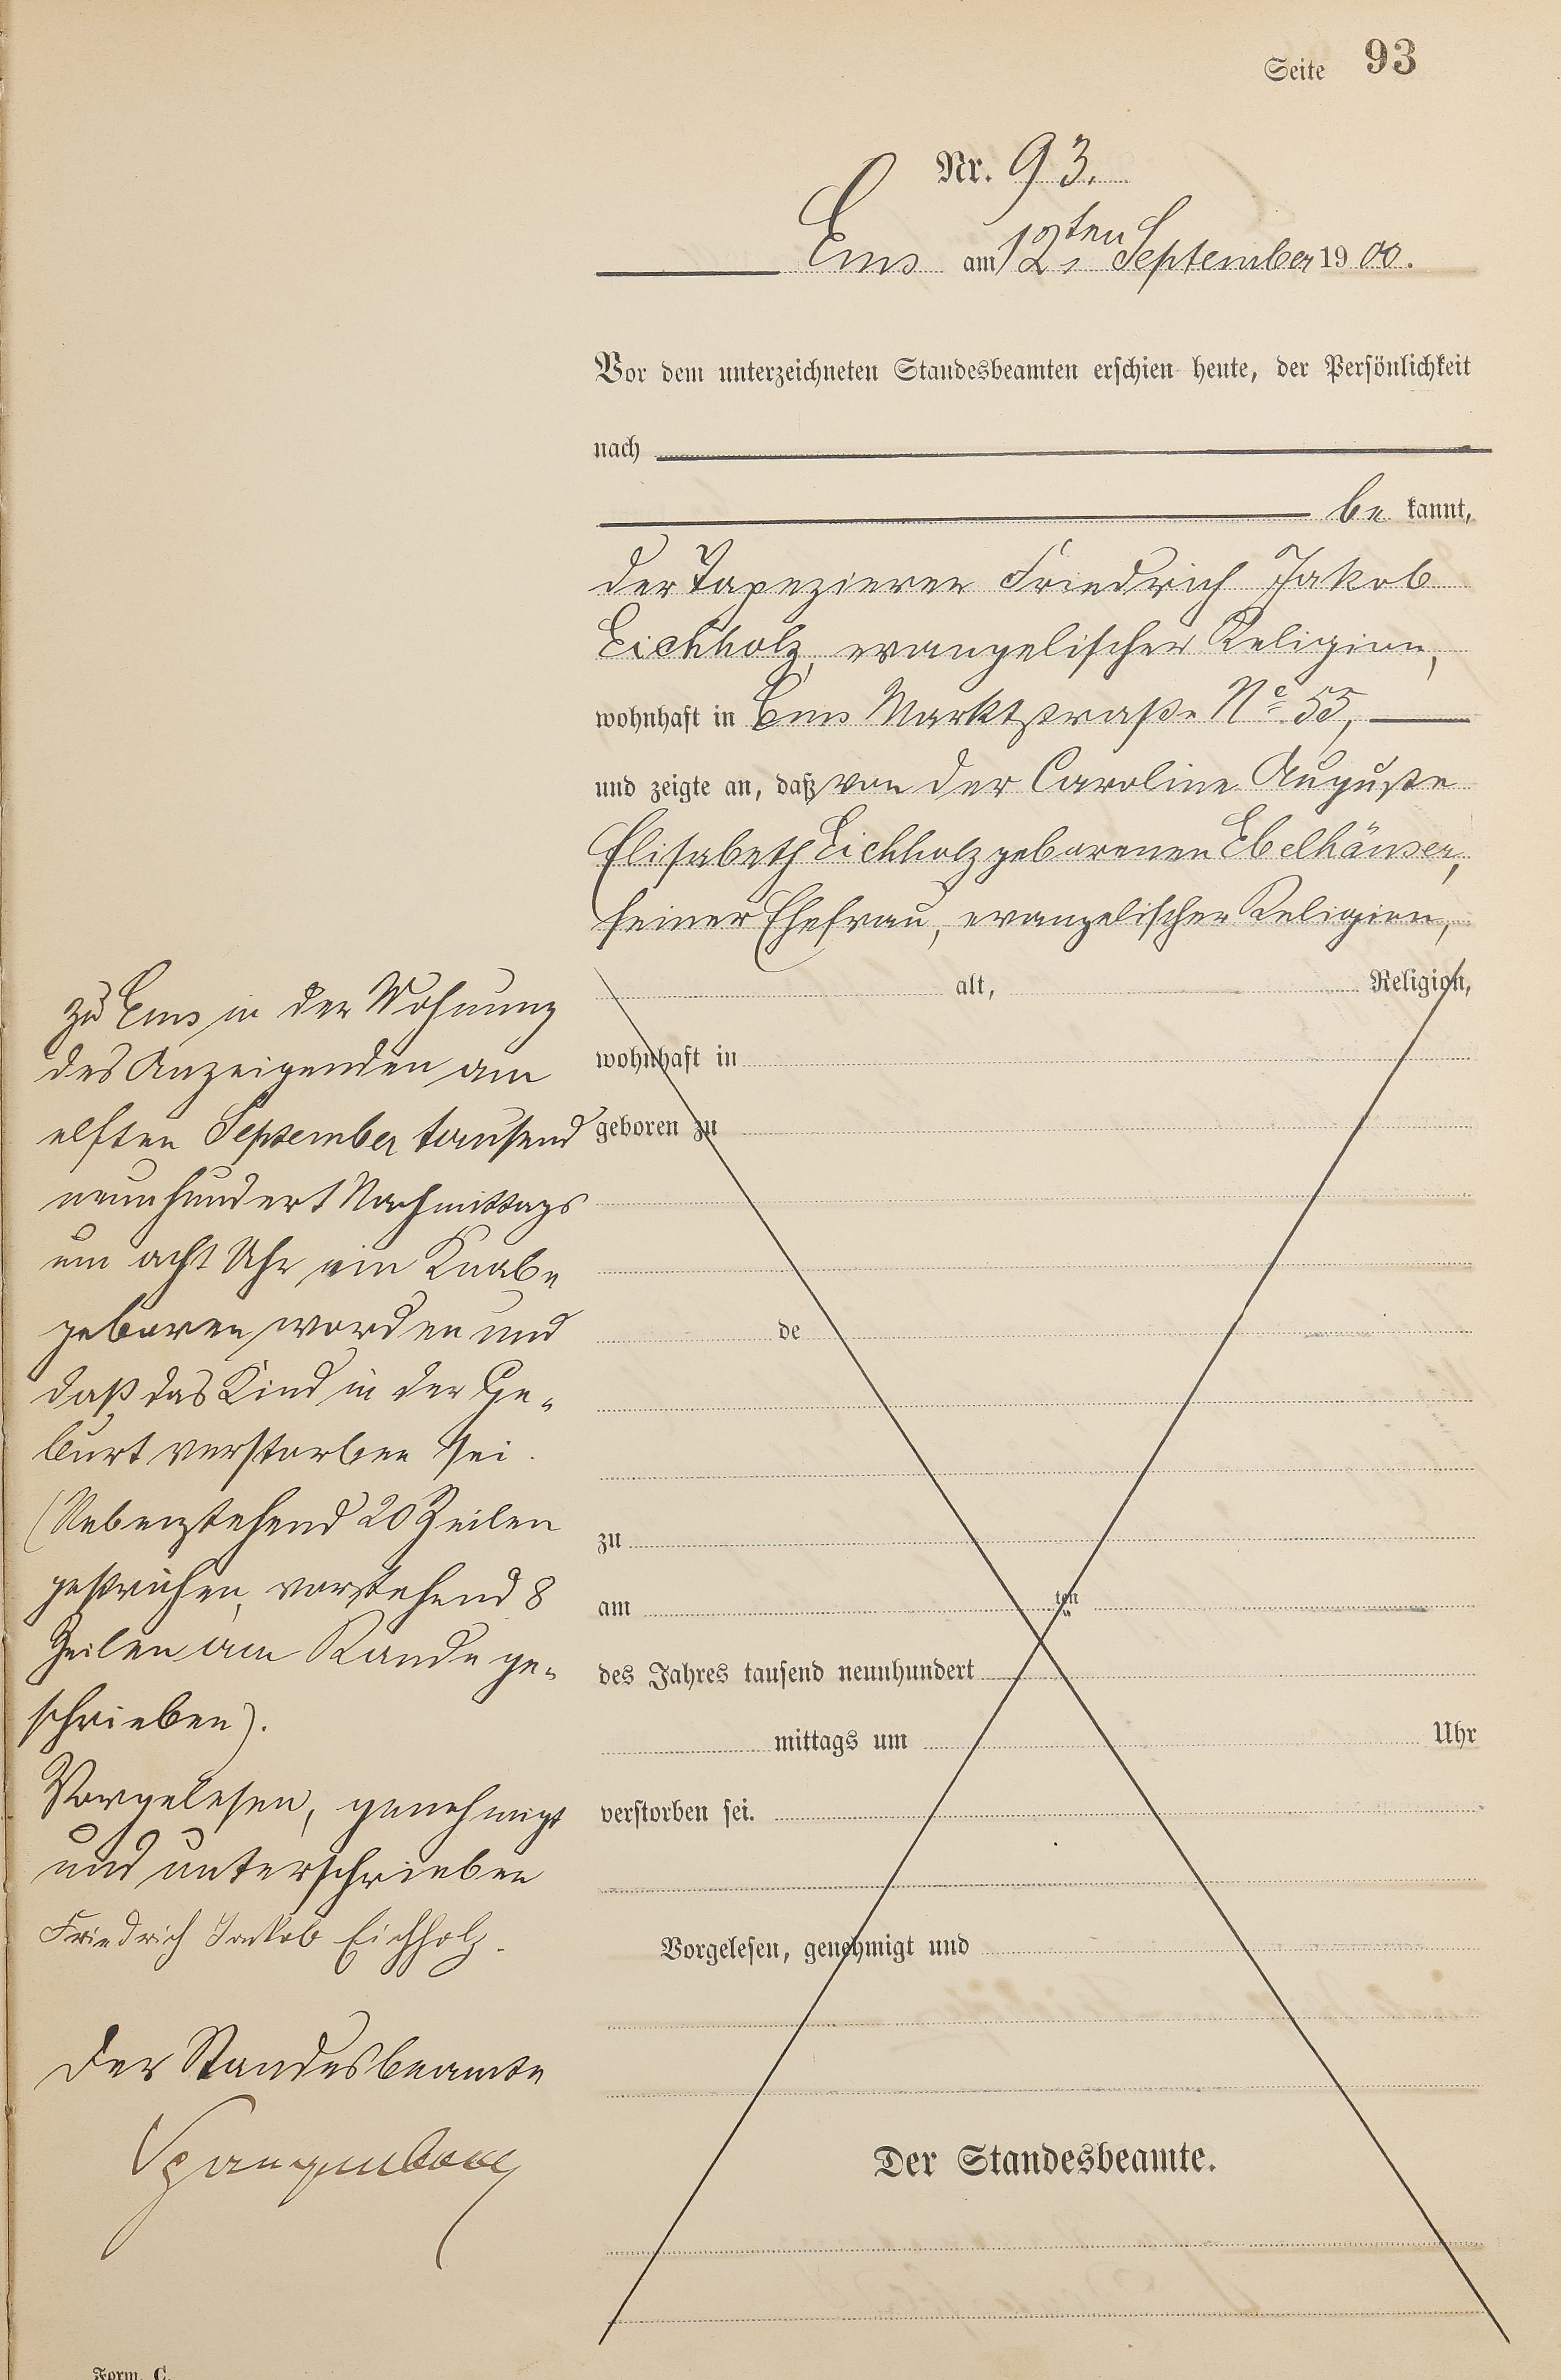 Seite 93
Nr. 93.
Ems am 12ten September 1900.
Vor dem unterzeichneten Standesbeamten erschien heute, der Persönlichkeit
nach
be kannt,
der Tapezierer Friedrich Jakob
Eichholz, evangelischer Religion,
wohnhaft in Ems Marktstraße No 55,
und zeigte an, daß von der Caroline Auguste
Elisabeth Eichholz geborenen Ebelhäuser,
seiner Ehefrau, evangelischer Religion,
zu Ems in der Wohnung
des Anzeigenden am
elften September tausend
neunhundert Nachmittags
um acht Uhr ein Knabe
geboren worden und
daß das Kind in der Ge-
burt verstorben sei.
(Nebenstehend 20 Zeilen
gestrichen, vorstehend 8
Zeilen am Rande ge-
schrieben).
Vorgelesen, genehmigt
und unterschrieben
Friedrich Jakob Eichholz.
Der Standesbeamte
alt, Religion,
wohnhaft in
geboren zu
de
zu
am ten
des Jahres tausend neunhundert
mittags um Uhr
verstorben sei.
Vorgelesen, genehmigt und
Der Standesbeamte.
Form. C.